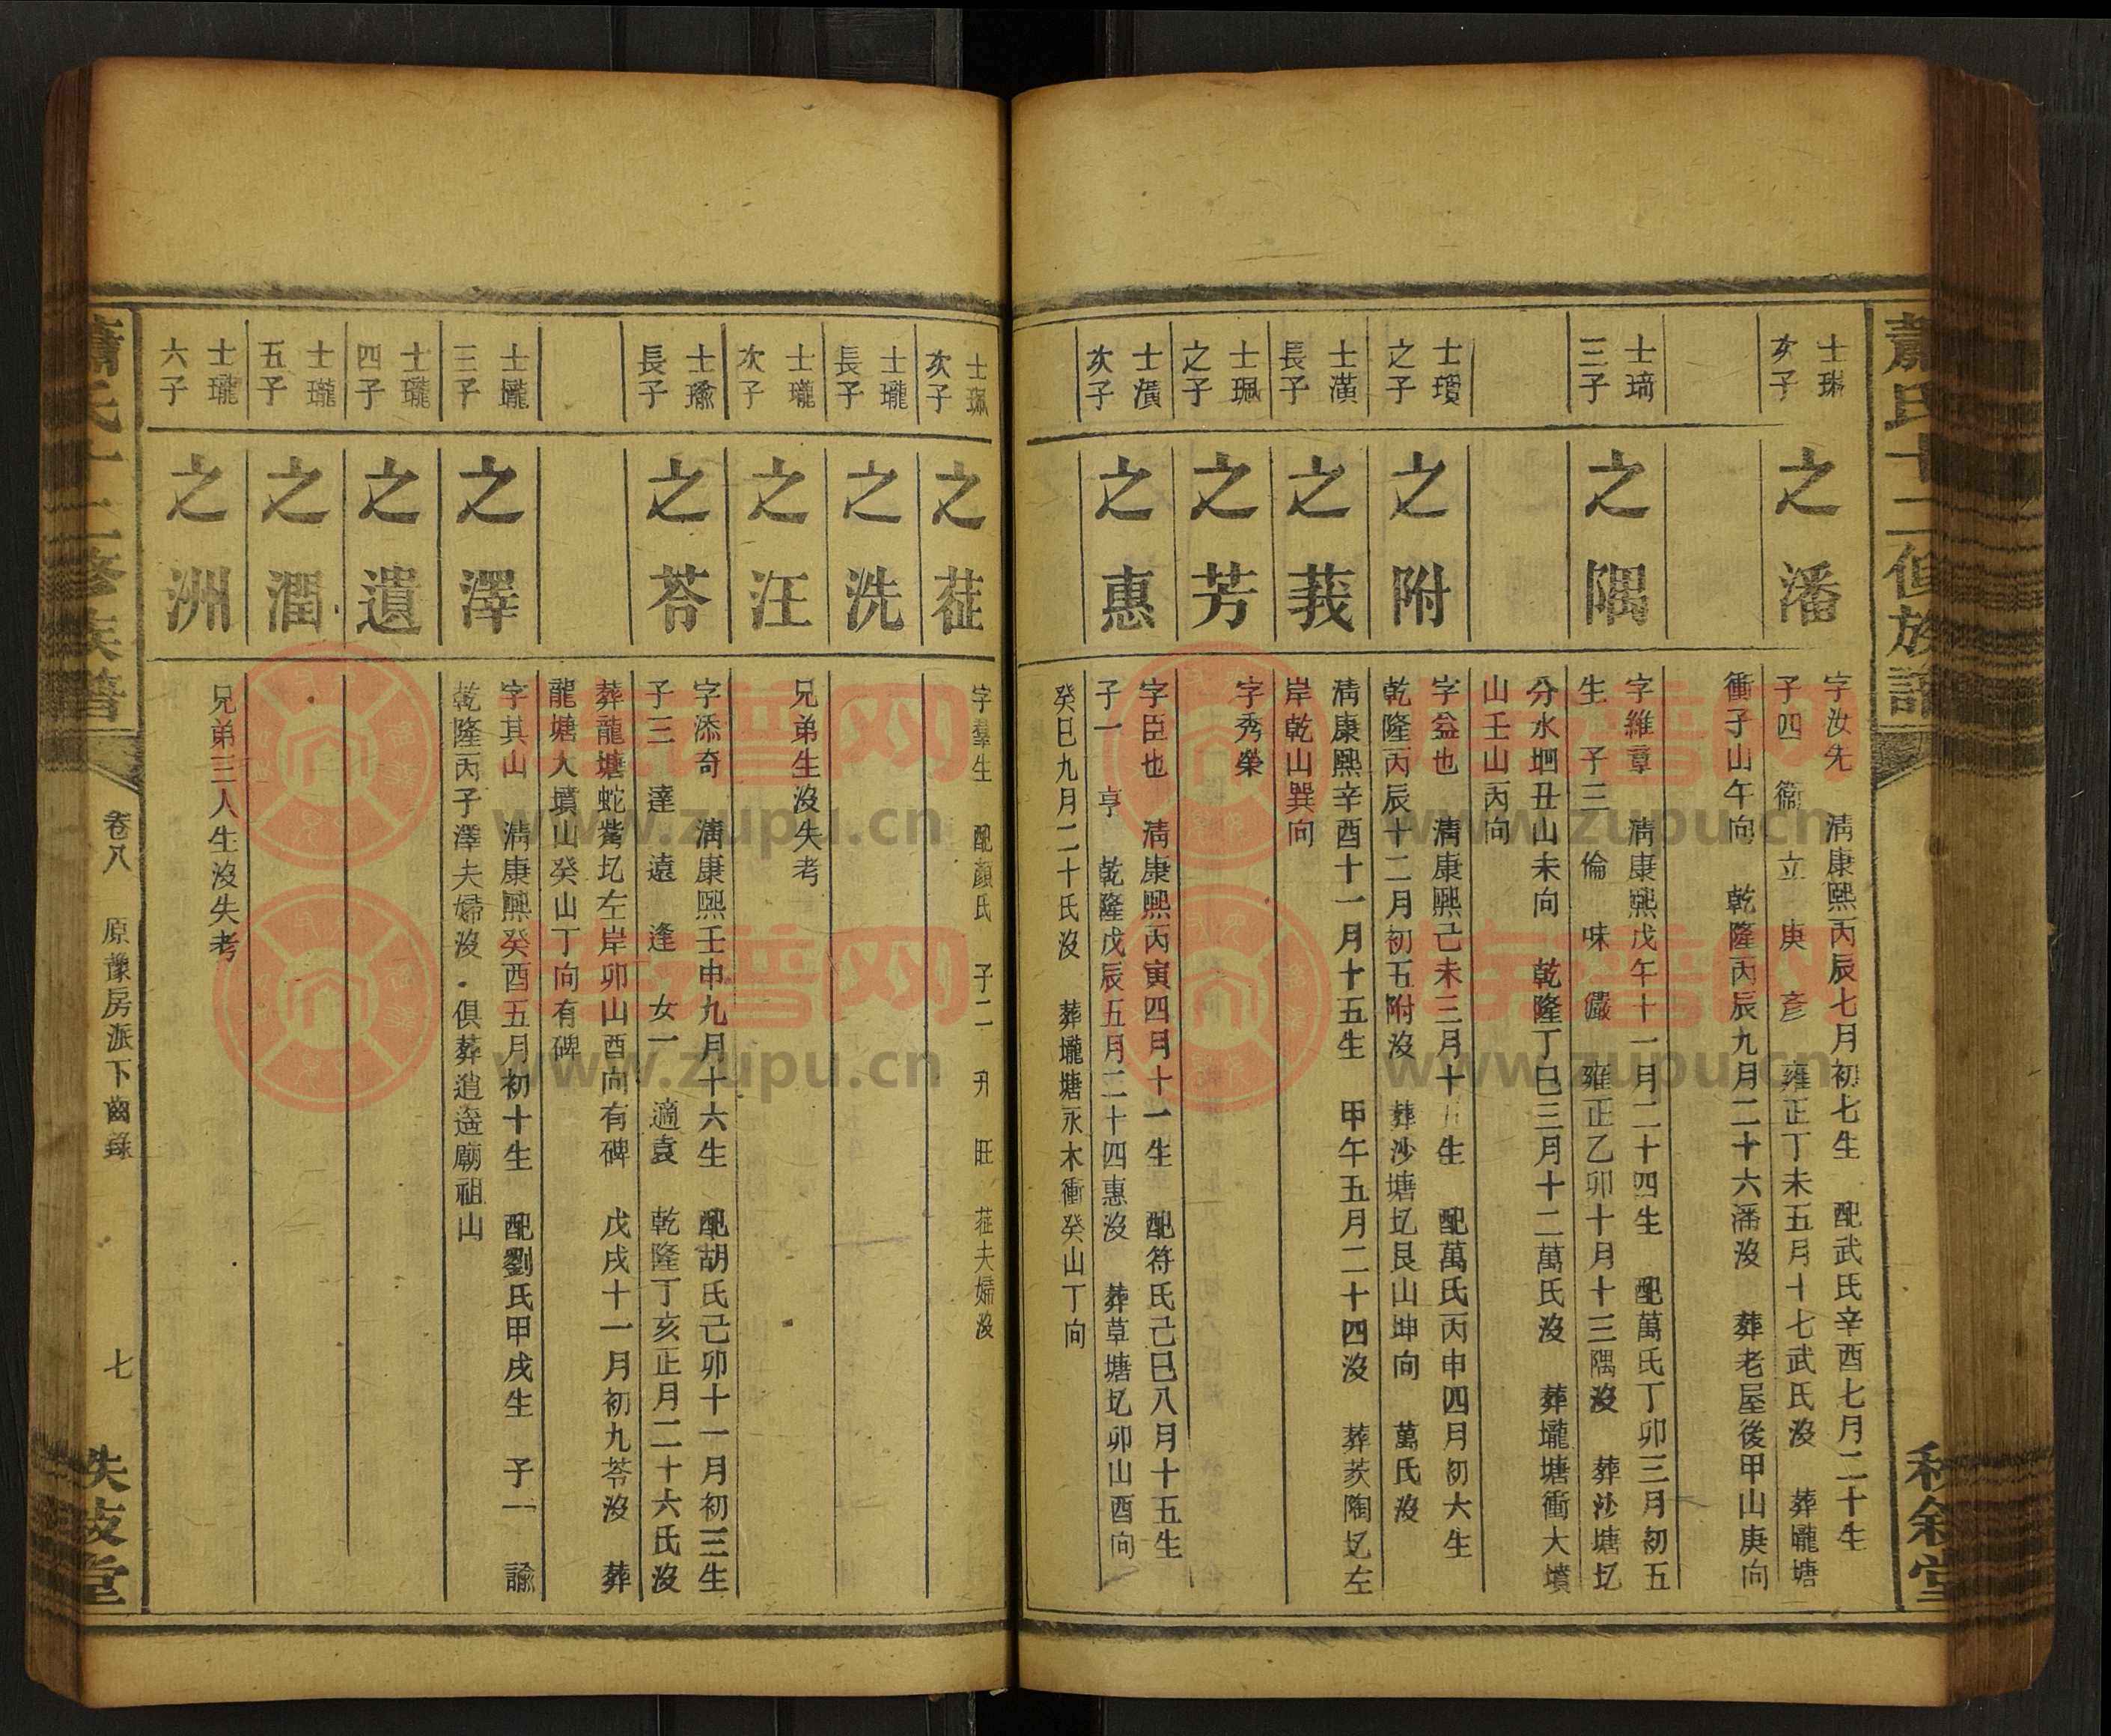 蕭氏十二修族譜
秩敘堂
士琳
次子
之潘
字汝先 清康熙丙辰七月初七生 配武氏辛酉七月二十生
子四 衞 立 庚 彥 雍正丁未五月十七武氏沒 葬隴塘
衝子山午向 乾隆丙辰九月二十六潘沒 葬老屋後甲山庚向
士璃
三子
之隅
字維章 清康熙戊午十一月二十四生 配萬氏丁卯三月初五
生 子三 倫 味 儼 雍正乙卯十月十三隅沒 葬沙塘圫
分水坰丑山未向 乾隆丁巳三月十二萬氏沒 葬壠塘衝大墳
山壬山丙向
士瓚
之子
之附
字益也 清康熙己未三月十五生 配萬氏丙申四月初六生
乾隆丙辰十二月初五附沒 葬沙塘圫艮山坤向 萬氏沒
士潢
長子
之莪
清康熙辛酉十一月十五生 甲午五月二十四沒 葬茨陶圫左
岸乾山巽向
士珮
之子
之芳
字秀榮
士潢
次子
之惠
字臣也 清康熙丙寅四月十一生 配符氏己巳八月十五生
子一 亨 乾隆戊辰五月二十四惠沒 葬草塘圫卯山酉向
癸巳九月二十氏沒 葬壠塘永木衝癸山丁向
士珮
次子
之莊
字羣生 配顏氏 子二 升 旺 莊夫婦沒
士瓏
長子
之洗
士瓏
次子
之汪
兄弟生沒失考
士瑜
長子
之荅
字添奇 清康熙壬申九月十六生 配胡氏己卯十一月初三生
子三 達 遠 逢 女一 適袁 乾隆丁亥正月二十六氏沒
葬龍塘蛇觜圫左岸卯山酉向有碑 戊戌十一月初九荅沒 葬
龍塘大墳山癸山丁向有碑
士瓏
三子
之澤
字其山 清康熙癸酉五月初十生 配劉氏甲戌生 子一 諭
乾隆丙子澤夫婦沒 俱葬逍遙廟祖山
士瓏
四子
之遺
士瓏
五子
之潤
士瓏
六子
之洲
兄弟三人生沒失考
蕭氏十二修族譜
卷八 原豫房派下齒錄
七
秩敘堂
族譜网
www.zupu.cn
族譜网
www.zupu.cn
族譜网
www.zupu.cn
族譜网
www.zupu.cn